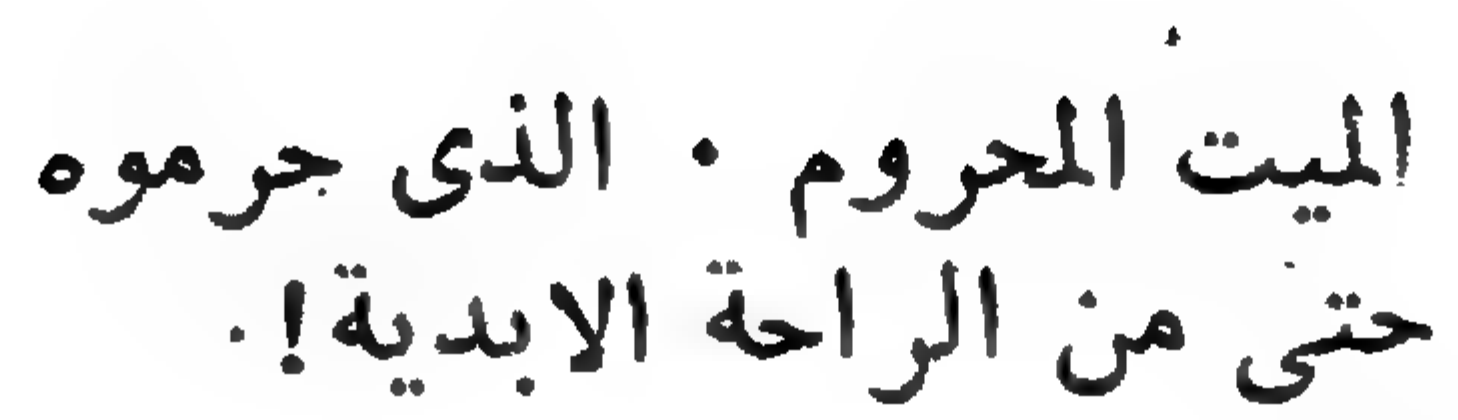 الميت المحروم . الذى جرموه
حتى من الراحة الابدية ! .